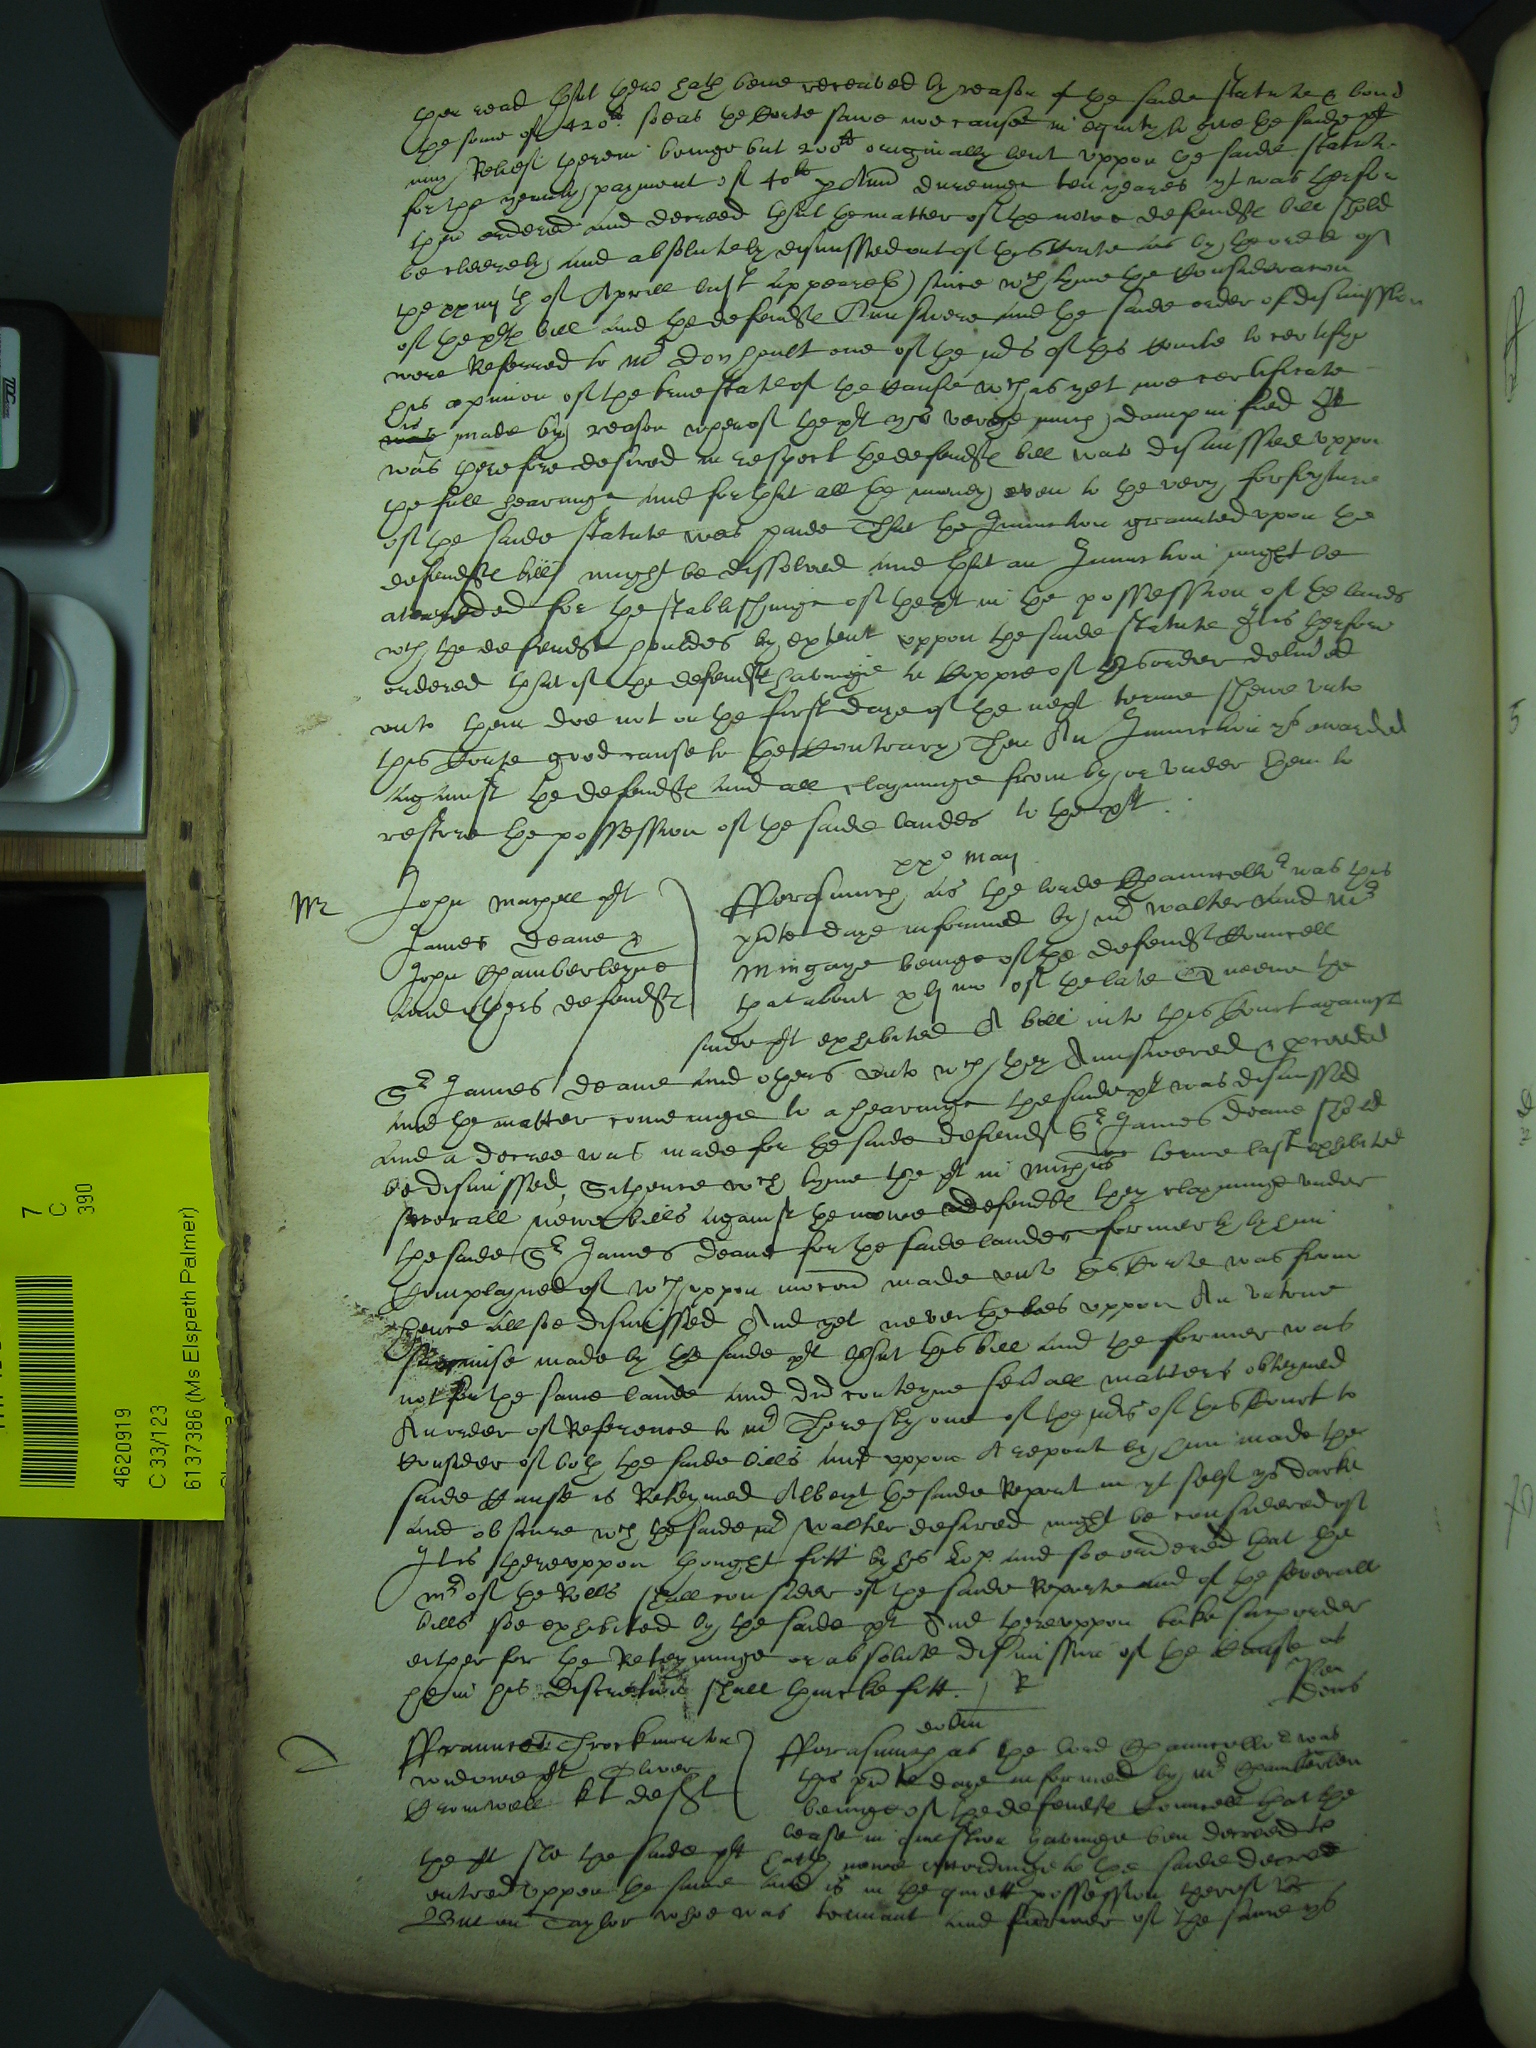 then read that there hath bene receaved by reason of the saide statute & bond
the some of 420li soe as the Corte sawe noe cause in equity to give the saide plt
any Relief therein beinge but 200li originally lent uppon the saide statute
for the yearely payment of 40li p Ann duringe ten yeares yt was therfore
then ordered and decreed that the matter of the nowe defendtes bill shold
be cleerely and absolutely dismissed out of this Corte as by the order of
the xxiiijth of Aprill last appeareth) since wch tyme the Consideracon
of the plts bill and the defendtes Aunswere and the saide order of dismission
were Referred to Mr Don hault one of the mrs of this Courte to certifye
his opinion of the true state of the Cause wch as yet noe certificate
is made by reason wherof the plt ys verye much dampnified It
was therefore desired in respect the defendtes bill was dismissed uppon
the full hearinge and for that all the money even to the very forfeyture
of the saide statute was paide That the Iniunction graunted upon the
defendtes bill might be dissolved and that an Iniunction might be
awarded for the stablishinge of the plt in the possession of the landes
wch the defendtes houldes by extent uppon the saide statute It is therfore
ordered that if the defendtes havinge a Coppie of this order delivered
unto them doe not on the first daye of the next terme shewe unto
this Corte good cause to the Contrary Then An Iniunction ys awarded
against the defendtes and all clayminge from by or under them to
restore the possession of the saide landes to the plt.
xxo Maij
Wr
John Machell plt
James Deane &
John Chamberleyne
and others defendtes
Fforasmuch as the lorde Chauncellor was this
pnte daye informed by Mr Walter and Mr
Mingaye beinge of the defendtes Councell
that about xlij no of the late Queene the
saide plt exhibited A bill into this Court against
Sr James Deane and others unto wch they Aunswered & proceeded
and the matter cominge to a hearinge the saide plt was dismissed
and a decree was made for the saide defendt Sr James Deane shold
be dismissed, Sithence wch tyme the plt in Michas terme last exhibited
severall newe bills against the nowe defendtes they clayminge under
the saide Sr James Deane for the saide landes formerly by him
Complayned of wch uppon mocon made unto this Corte was from
hence allsoe dismissed And yet neverthelees uppon An untrue
surmise made by the saide plt that this bill and the former was
not for the same lande and did conteyne sevall matters obteyned
An order of Reference to Mr Thoresby one of the mrs of this Court to
Consider of both the saide bills and uppon A report by him made the
saide Cause is Reteyned Albeyt the saide Report in yt self ys darke
and obscure wch the saide Mr Walter desired might be considered of
It is thereuppon thought fitt by his Lop and soe ordered that the
Mr of the Rolls shall consider of the saide Reporte and of the severall
bills soe exhibited by the saide plt And thereuppon take such order
either for the Reteyninge or absolute dismission of the Cause as
he in his discretion shall thincke fitt. R
eodm
Ffraunces Throckmorton
widowe plt Oliver
Cromwell kt deft
Fforasmuch as the lord Chauncellor was
this pnte daye informed by Mr Chamberlen
beinge of the defendtes Councell that the
lease in question havinge ben decreed to
the plt she the saide plt hath nowe accordinge to the saide decree
entred uppon the same and is in the quiett possession therof &
one Taylor whoe was tennant and farmer of the same ys
7
C
390
4620919
C 33/123
6137386 (Ms Elspeth Palmer)